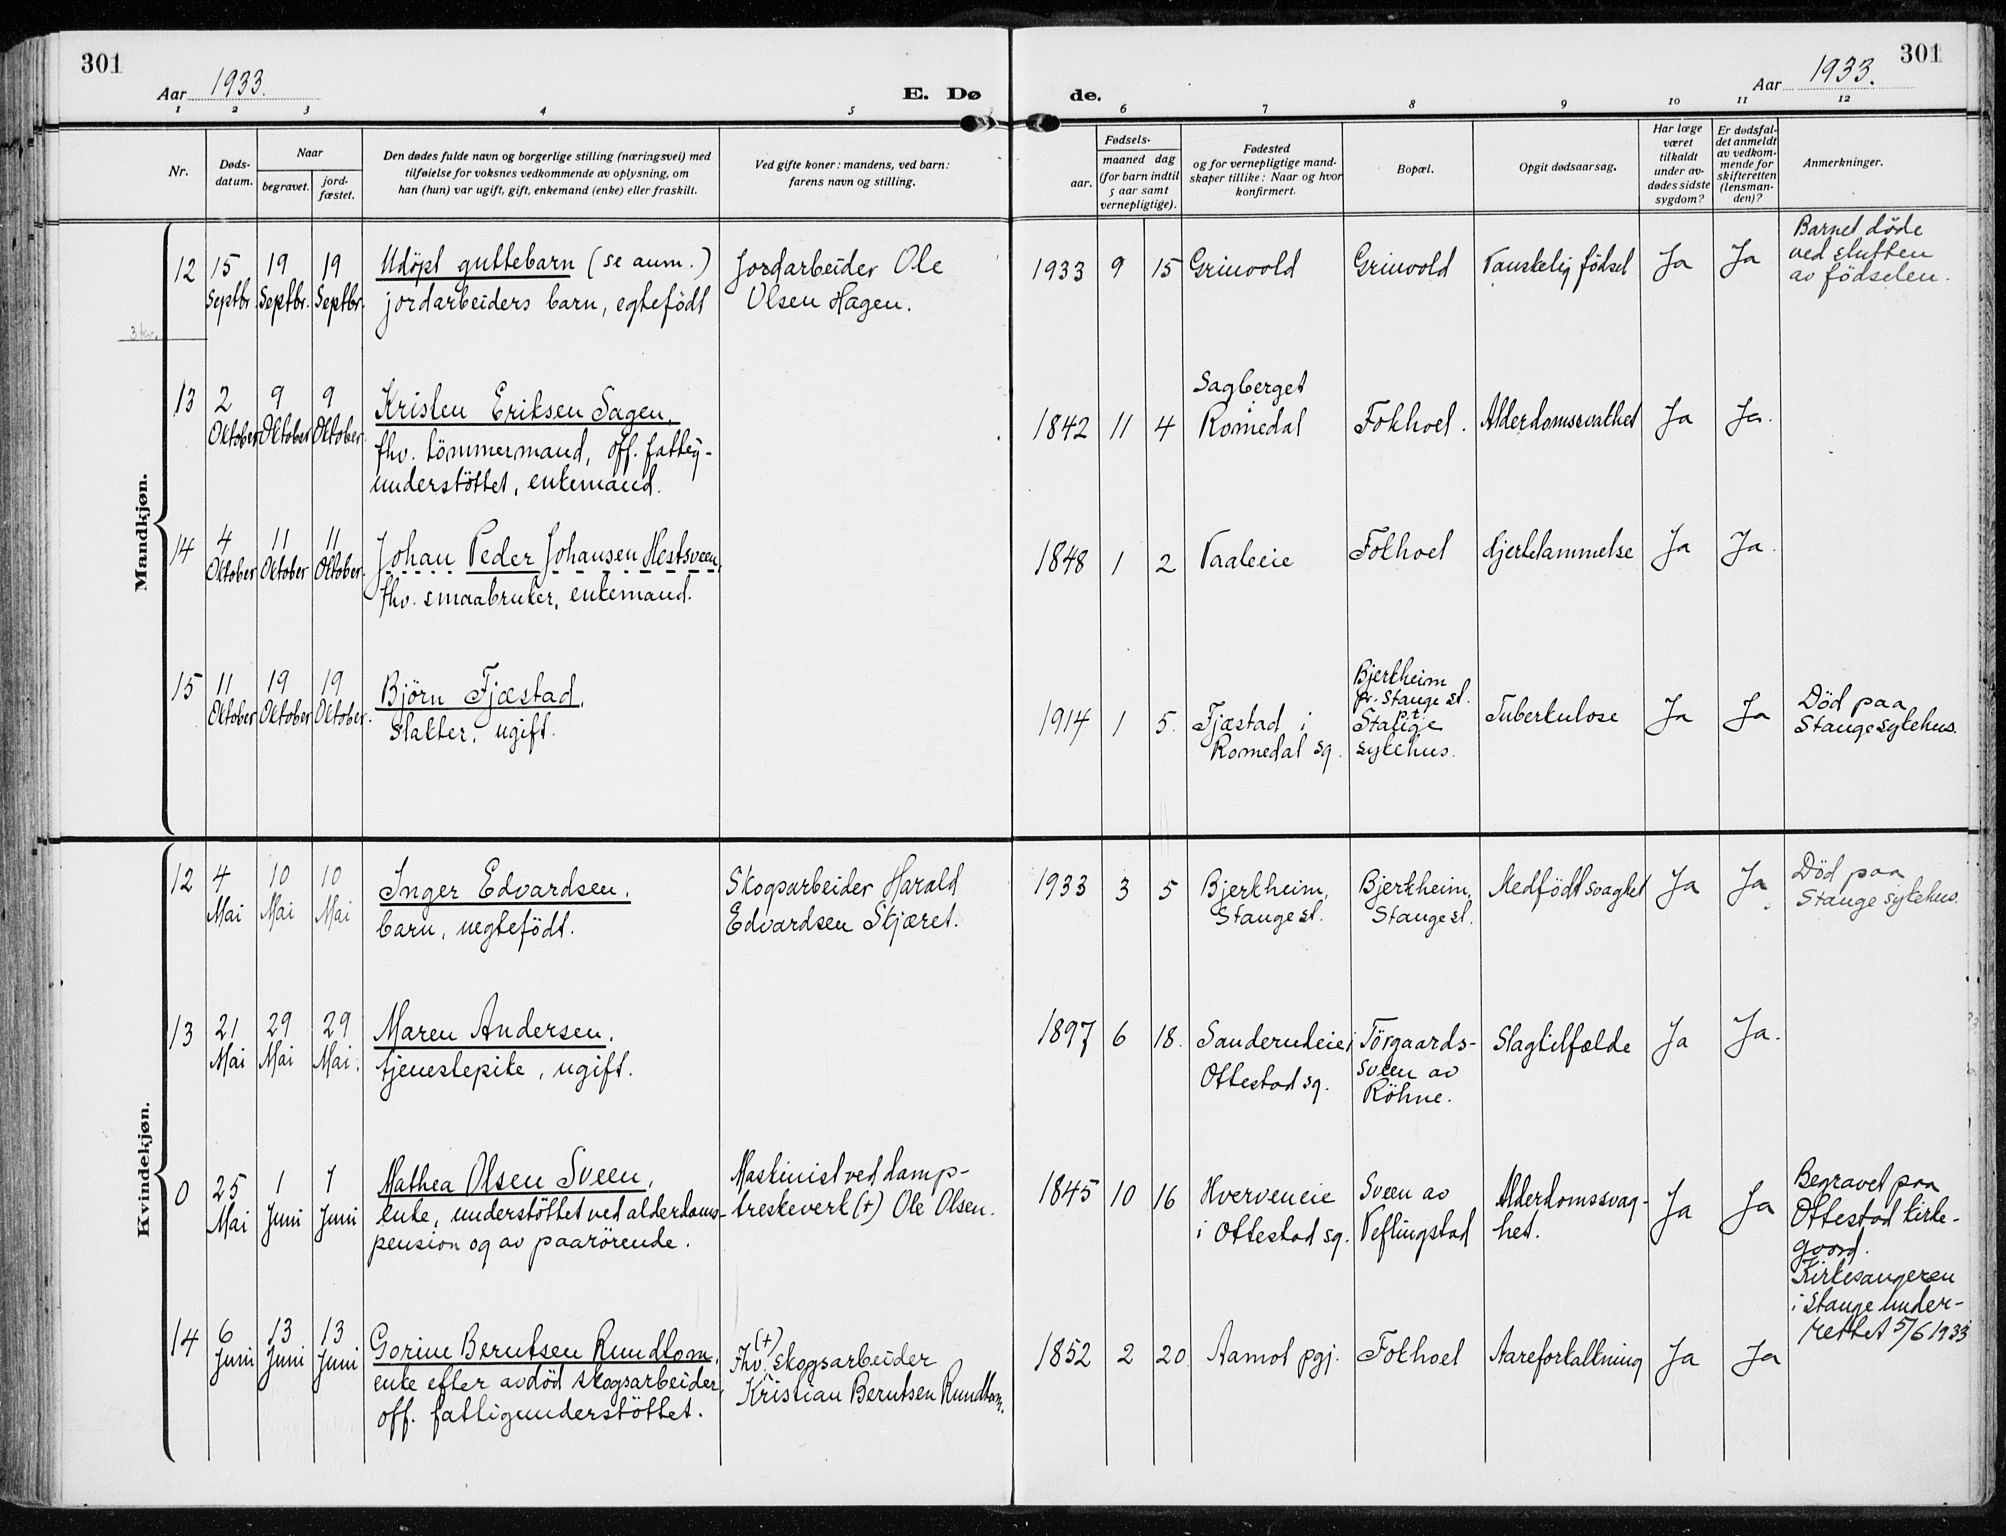 301
Aar 1933.
E. Dø
de.
Aar 1933.
301
1 2 3 4 5 6 7 8 9 10 11 12
Nr.
Døds-
datum.
Naar
begravet.
jord-
fæstet.
Den dødes fulde navn og borgerlige stilling (næringsvei) med
tilføielse for voksnes vedkommende av oplysning, om
han (hun) var ugift, gift, enkemand (enke) eller fraskilt.
Ved gifte koner: mandens, ved barn:
farens navn og stilling.
Fødsels-
aar.
maaned dag
(for barn indtil
5 aar samt
vernepligtige).
Fødested
og for vernepligtige mand-
skaper tillike: Naar og hvor
konfirmert.
Bopæl.
Opgit dødsaarsag.
Har læge
været
tilkaldt
under av-
dødes sidste
sygdom?
Er dødsfal-
det anmeldt
av vedkom-
mende for
skifteretten
(lensman-
den)?
Anmerkninger.
Mandkjøn.
12
15
Septbr.
19
Septbr.
19
Septbr.
Udöpt guttebarn (se anm.)
jordarbeiders barn, egtefödt
Jordarbeider Ole
Olsen Hagen.
1933 9 15
Grinvold
Grinvold
Vanskelig födsel
Ja
Ja
Barnet döde
ved slutten
av födselen.
13
2
Oktober
9
Oktober
9
Oktober.
Kristen Eriksen Sagen,
fhv. tömmermand, off. fattig-
understöttet, enkemand.
1842 11 4
Sagberget
i
Romedal
Fokhoel.
Alderdomssvakhet
Ja
Ja.
14
4
Oktober
11
Oktober
11
Oktober.
Johan Peder Johansen Hestsveen,
fhv. smaabruker, enkemand.
1848 1 2
Vaaleie
Fokhoel
Hjertelammelse
Ja
Ja.
15
11
Oktober
19
Oktober
19
Oktober.
Björn Fjæstad,
slakter, ugift.
1914 1 5.
Fjæstad i
Romedal sg.
Bjerkheim
pr. Stange st.
p.t.
Stange
sykehus.
Tuberkulose
Ja
Ja
Död paa
Stange sykehus.
Kvindekjøn.
12
4
Mai
10
Mai
10
Mai
Inger Edvardsen,
barn, uegtefödt.
Skogsarbeider Harald
Edvardsen Skjæret.
1933 3 5
Bjerkheim,
Stange st.
Bjerkheim,
Stange st.
Medfödt svaghet
Ja
Ja
Död paa
Stange sykehus.
13
21
Mai
29
Mai
29
Mai.
Maren Andersen,
tjenestepike, ugift.
1897 6 18.
Sanderudeie i
Ottestad sg.
Törgaards-
sveen av
Röhne.
Slagtilfælde
Ja
Ja.
0
25
Mai
1
Juni
1
Juni
Mathea Olsen Sveen,
enke, understöttet ved alderdoms-
pension og av paarörende.
Maskinist ved damp-
treskeverk (+) Ole Olsen.
1845 10 16
Hverveneie
i Ottestad sg.
Sveen av
Veflingstad
Alderdomssvag-
het.
Ja
Ja
Begravet paa
Ottestad kirke-
gaard.
Kirkesangeren
i Stange under-
rettet 5/6 1933
14
6
Juni
13
Juni
13
Juni
Gorine Berntsen Rundlom,
enke efter avdöd skogsarbeider,
off. fattigunderstöttet.
(+)
Fhv. skogsarbeider
Kristian Berntsen Rundlom.
1852 2 20
Aamot pgj.
Fokhoel
Aareforkalkning
Ja
Ja